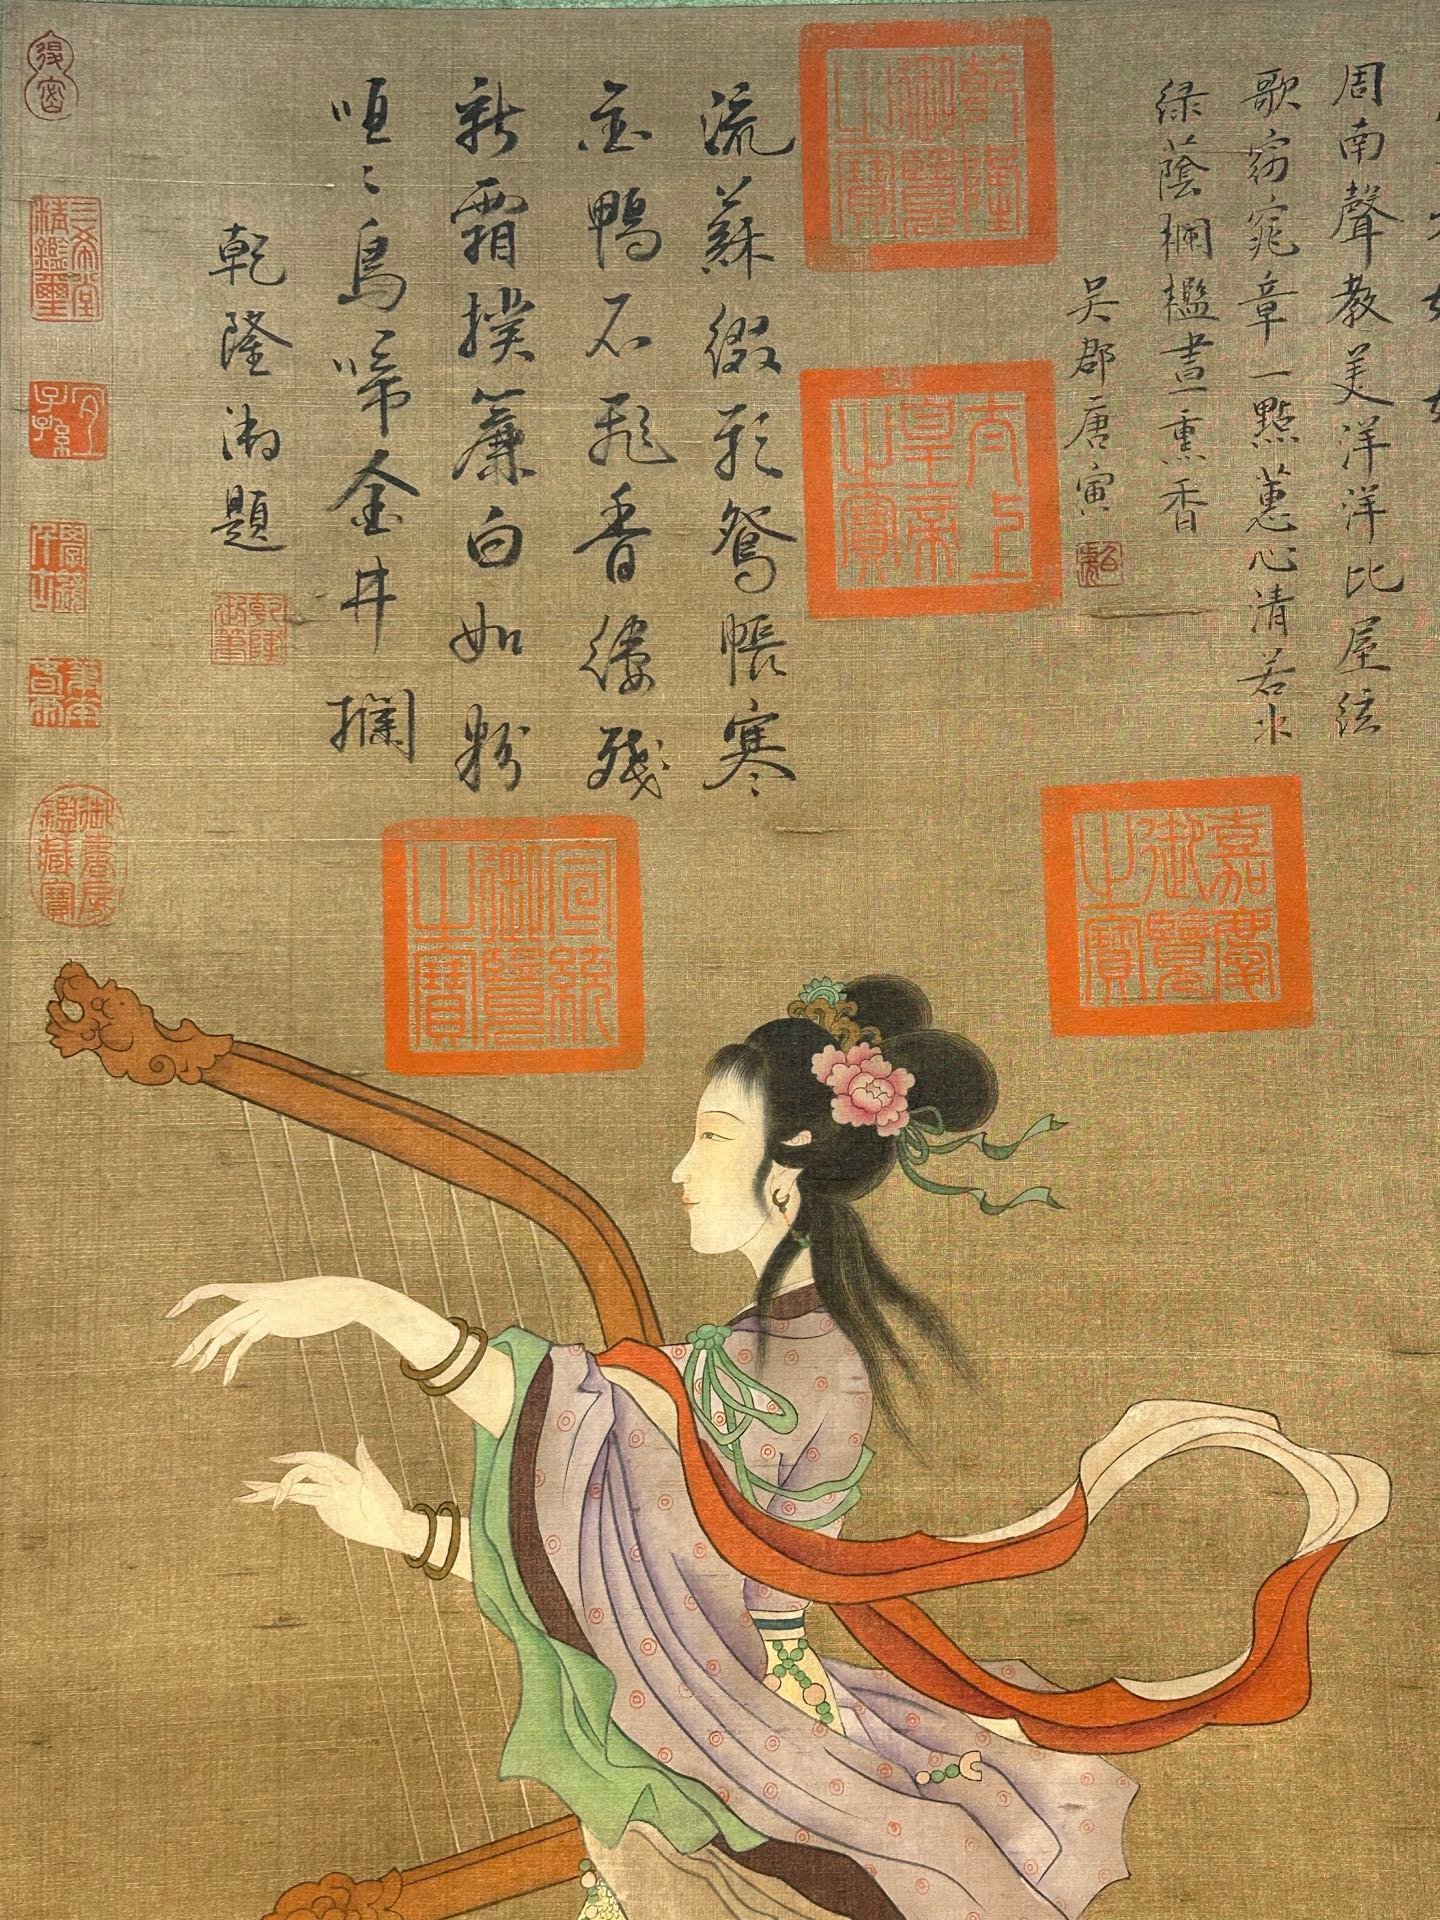 周南聲教美洋洋比屋弦
歌窈窕章一點蕙心清若水
绿蔭欄檻晝熏香
吳郡唐寅
乾隆御覽之寶
太上皇帝之寶
嘉慶御覽之寶
流蘇綴彩鴛帳寒
金鴨不飛香縷殘
新霜撲簾白如粉
咺〻烏啼金井攔
乾隆御題
乾隆御筆
宣統御覽之寶
三希堂精鑑璽
宜子孫
御書房鑑藏寶